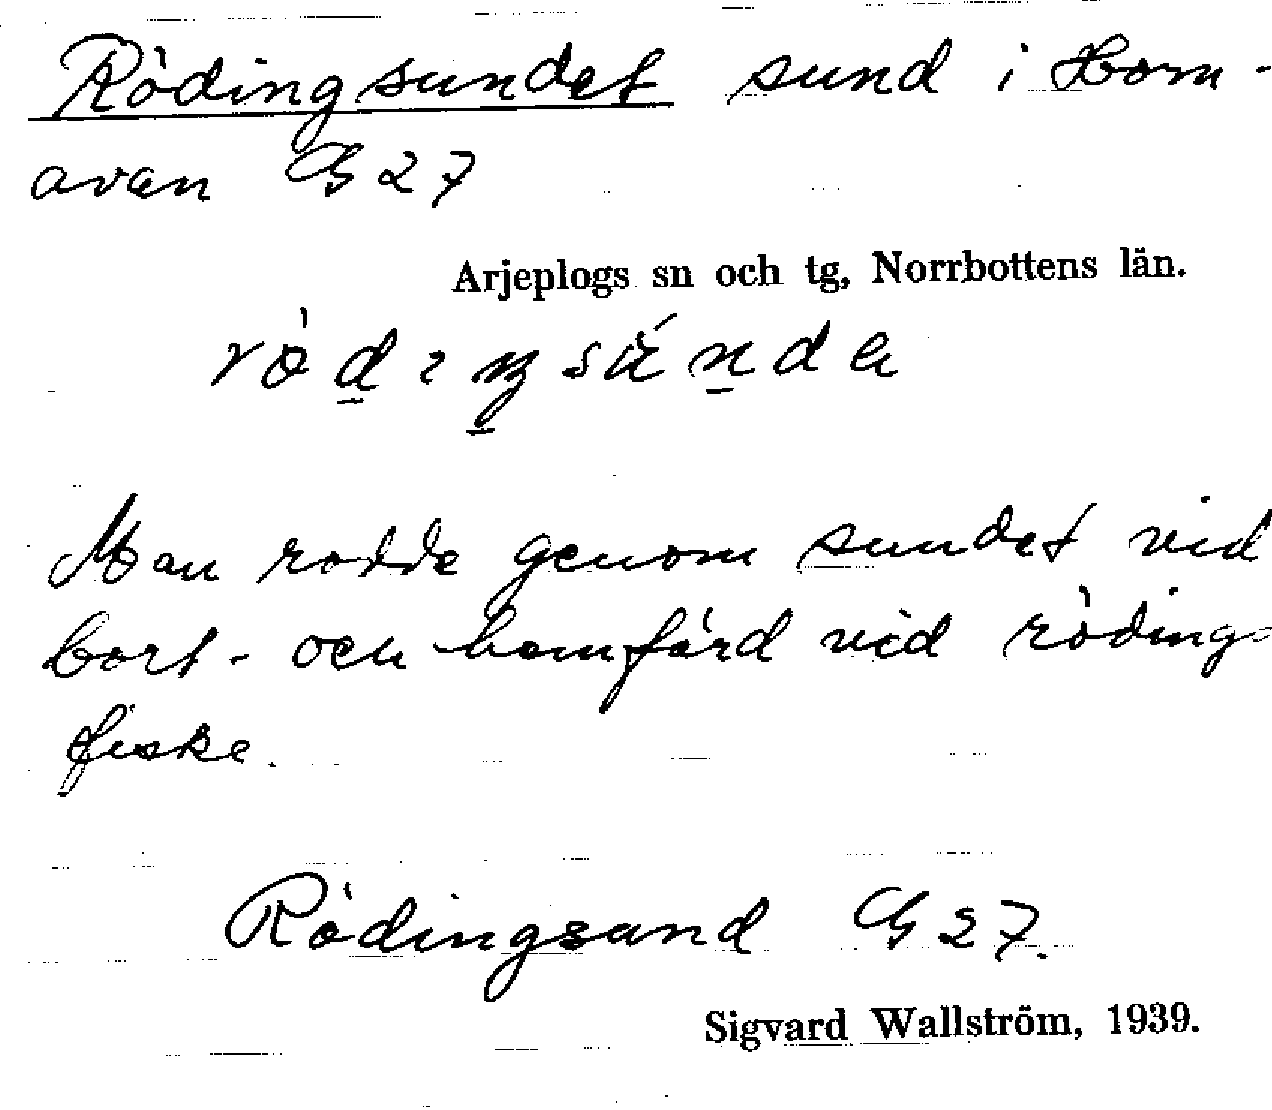 Rödingsundet sund i Horn-
avan G 27
Arjeplogs sn och tg, Norrbottens län.
Man rodde genom sundet vid
bort- och hemfärd vid röding-
fiske.
Rödingsund G 27.
Sigvard Wallström, 1939.